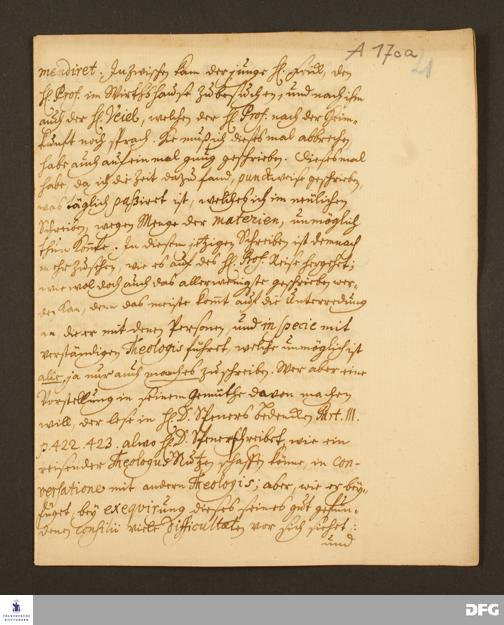 A 170a 21
mendiret. Inzwischen kam der junge H. Heil, den
H. Prof. im Wirthshause zubesuchen, und nach ihm
auch der H. Veiel, welchen der H. Prof. nach der Heim-
kunft noch sprach. Hie muß ich dieses mal abbrechen,
habe auch auf ein mal gnug geschrieben. Dieses mal
habe, da ich die Zeit dazu fand, punctweise geschrieben,
was täglich paßiret ist, welches ich im neulichen
Schreiben, wegen Menge der materien, unmöglich
thun konte. In diesem jetzigen Schreiben ist demnach
mehr zusehen, wie es auf des H. Prof. Reise hergehet;
wie wol doch auch das allerwenigste geschrieben wer-
den kan, denn das meiste komt auf die Unterredung
an die er mit denen Personen, und in specie mit
verständigen Theologis führet, welche unmöglich ist
alle, ja nur auch manches zuschreiben. Wer aber eine
Vorstellung in seinem Gemüthe davon machen
will, der lese in H. D. Speners Bedencken Part. III.
p. 422. 423. alwo H. D. Spener schreibet, wie ein
reisender Theologus Nutzen schaffen könne, in con-
versatione mit andern Theologis; aber, wie er bey-
füget, bey exeqvirung dieses seines gut gefun-
denen Consilii viele difficultäten vor sich siehet:
und
FRANCKESCHE
STIFTUNGEN
DFG